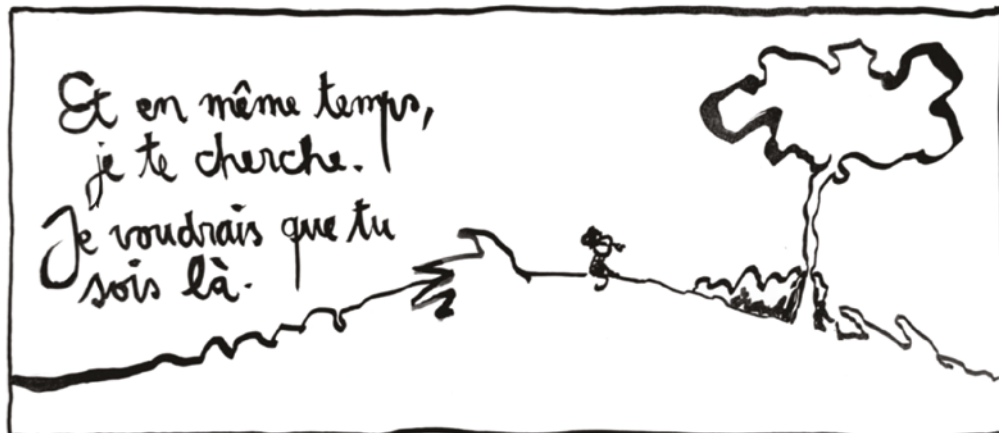 Et en même temps,
je te cherche.
Je voudrais que tu
sois là.